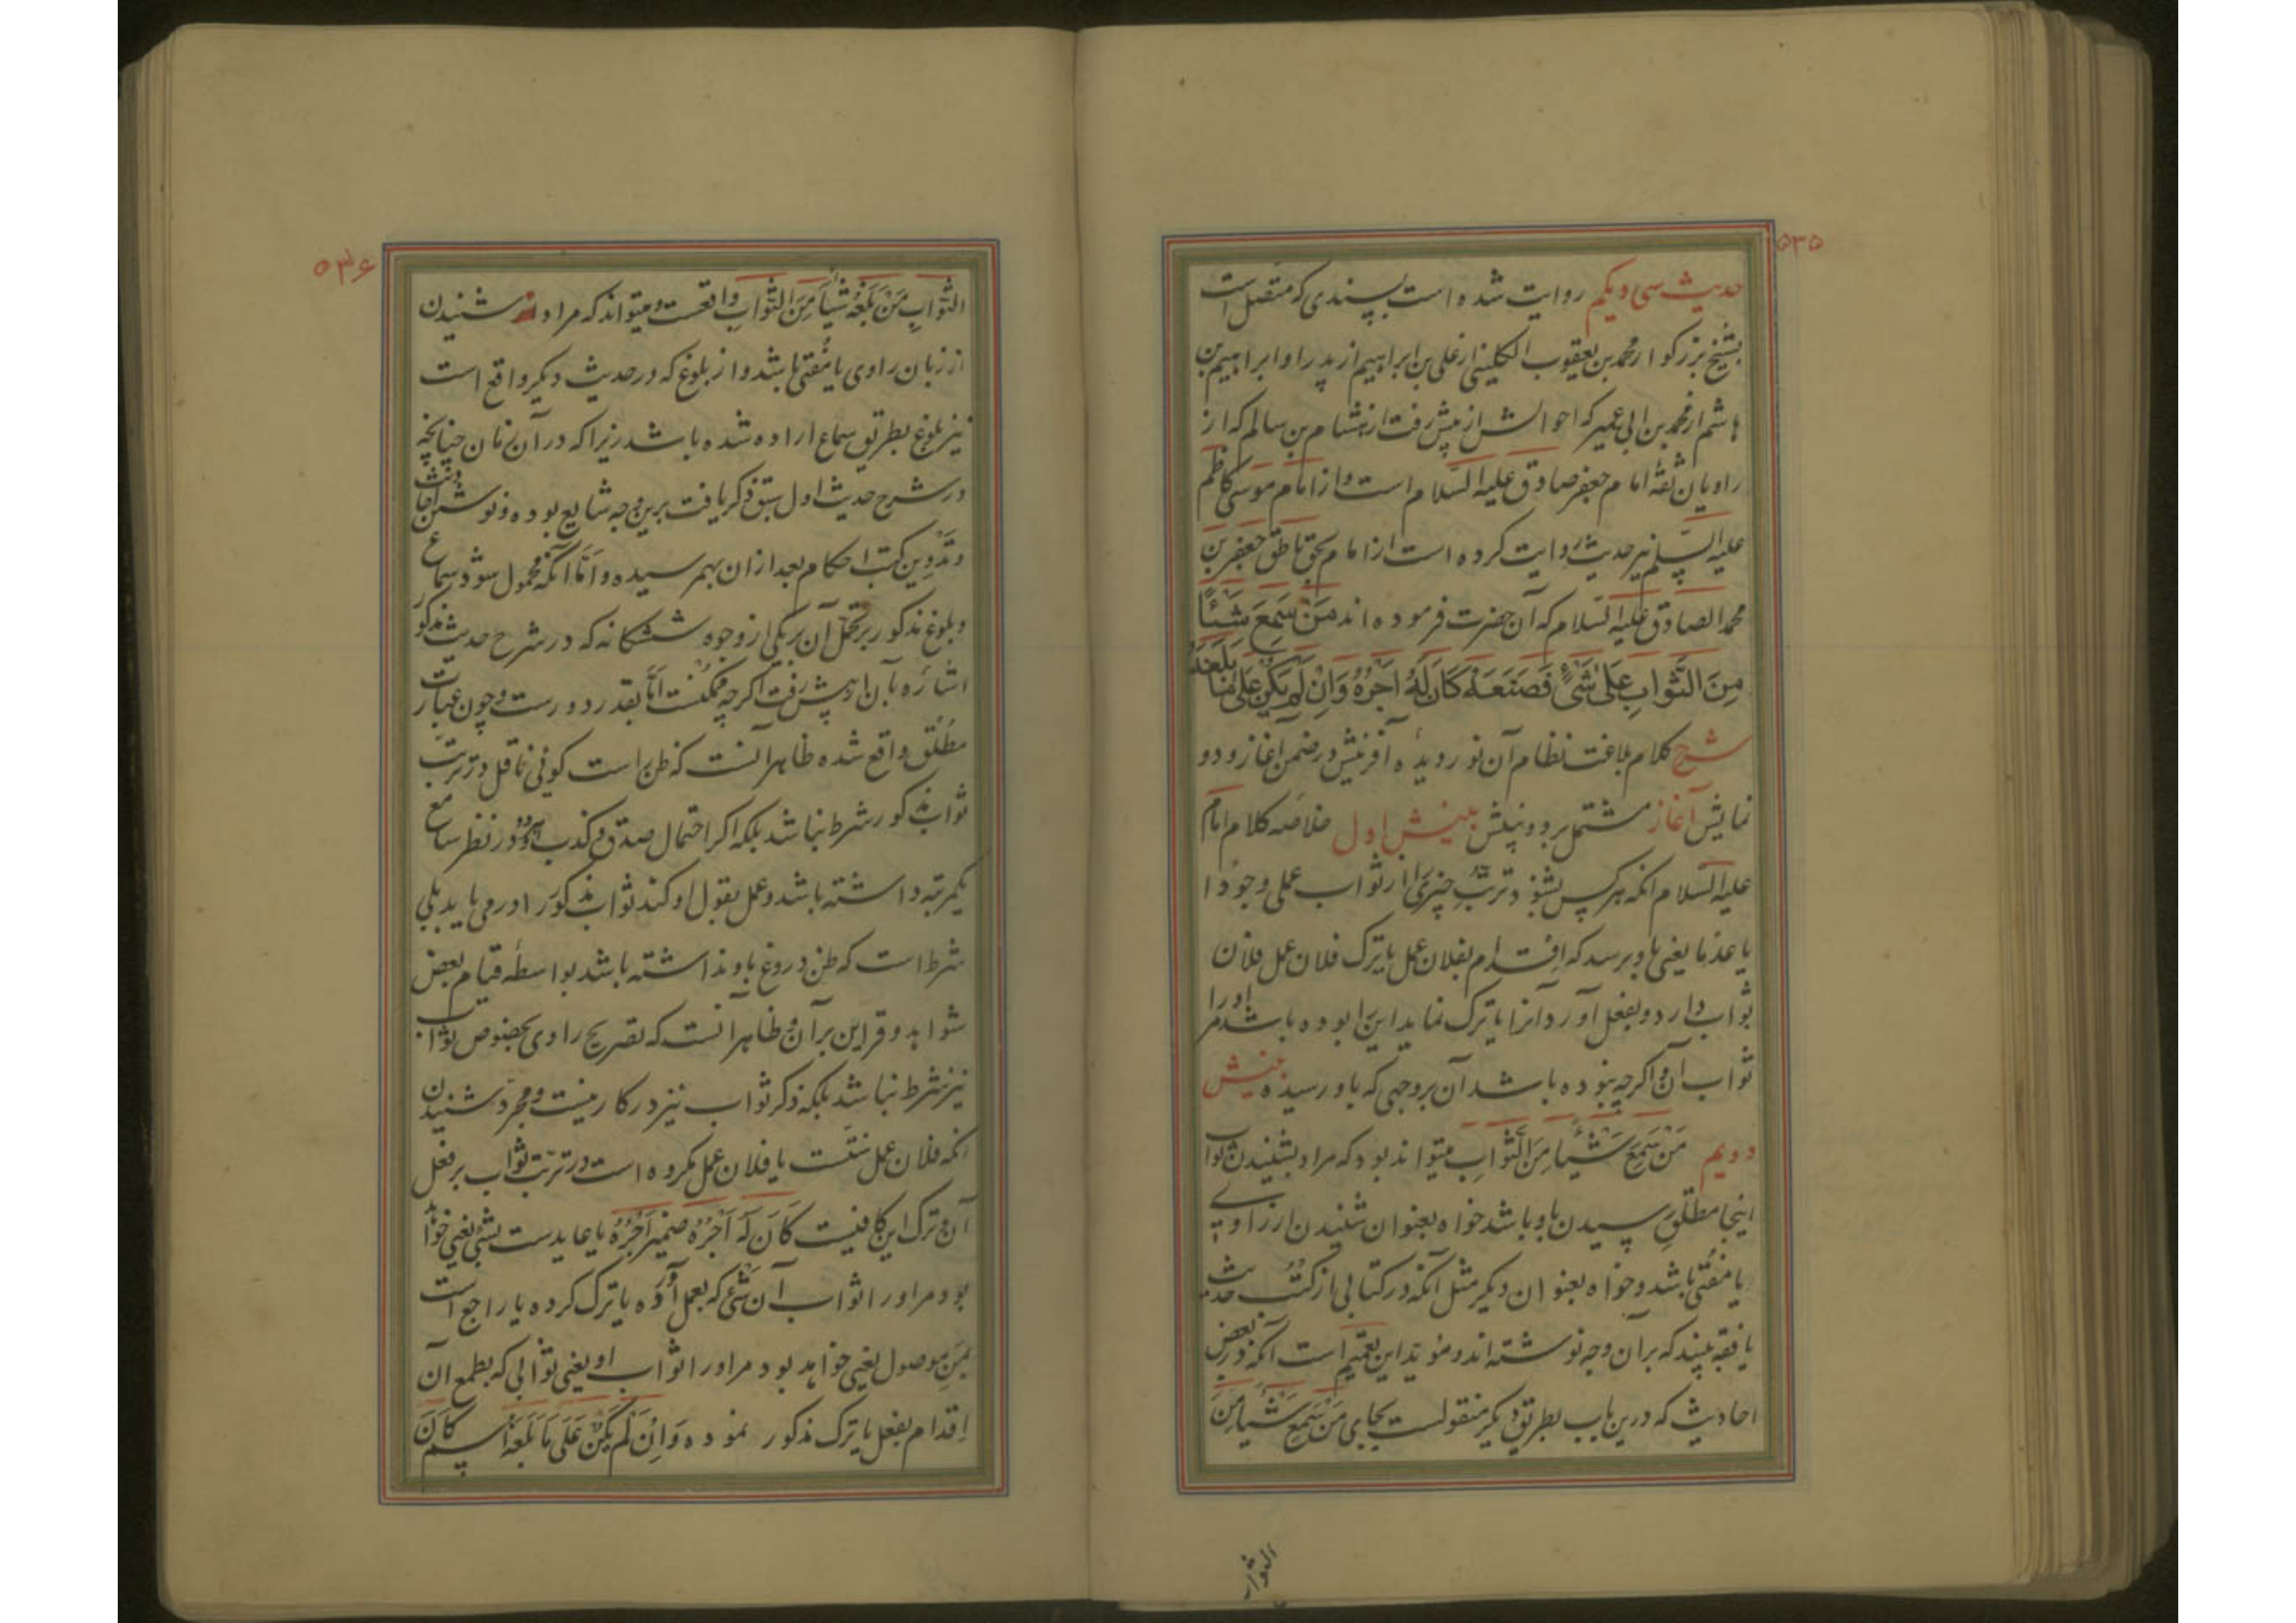 ٥٣٥
حدیث سی و یکم روایت شده است بسندی که متصل است
بشیخ بزرکوار محمد بن یعقوب الکلینی از علی بن ابراهیم از پدر او ابراهیم بن
هاشم از محمد بن ابی عمیر که احوالش از پیش رفت از هشام بن سالم که از
راویان ثقهٔ امام جعفر صادق علیه السلام است و از امام موسی کاظم
علیه السلم نیز حدیث روایت کرده است از امام بحق ناطق جعفر بن
محمد الصادق علیه السلام که آن حضرت فرموده اند مَنْ سَمِعَ شَیْئًا
مِنَ الثَّوابِ عَلیٰ شَیْءٍ فَصَنَعَهُ کَانَ لَهُ اَجْرُهُ وَاِنْ لَمْ یَکُنْ عَلیٰ مَا بَلَغَهُ
شرح کلام بلاغت نظام آن نور دیدهٔ آفرینش در ضمن آغاز و دو
نمایش آغاز مشتمل بر دو بینش بینش اول خلاصه کلام امام
علیه السلام آنکه هر کس بشنود ترتّب چیزیرا از ثواب عملی وجودا
یا عدما یعنی باو برسد که اقدام بفلان عمل یا ترک فلان عمل فلان
ثواب دارد و بفعل آورد آنرا یا ترک نماید این را بوده باشد مر او را
ثواب آن و اکرچه نبوده باشد آن بر وجهی که باو رسیده بینش
دویم مَنْ سَمِعَ شَیْئًا مِنَ الثَّوابِ میتواند بود که مراد بشنیدن ثواب
اینجا مطلق رسیدن باو باشد خواه بعنوان شنیدن از راوی
یا مفتی باشد و خواه بعنوان دیکر مثل آنکه در کتابی از کتُب حدیث
یا فقه بیند که بر آن وجه نوشته اند و مؤید این تعمیم است آنکه در بعض
احادیث که درین باب بطریق دیکر منقولست بجای مَنْ سَمِعَ شَیْئًا مِنَ
الثواب
٥٣۶
الثَّوابِ مَنْ بَلَغَهُ شَیْئًا مِنَ الثَّوابِ واقعست و میتواند که مراد از شنیدن
از زبان راوی یا مُفتی باشد و از بلوغ که در حدیث دیکر واقع است
نیز بلوغ بطریق سماع اراده شده باشد زیرا که در آن زمان چنانچه
در شرح حدیث اول سبق ذکر یافت برین وجه شایع بوده و نوشتن احادیث
و تَدْوین کتب احکام بعد از آن بهمرسیده و اَمّا آنکه محمول شود سماع
و بلوغ مذکور بر تحمّل آن بر یکی از وجوه ششکانه که در شرح حدیث مذکور
اشاره بآن از پیش رفت اکرچه ممکنست اَمّا بقدر دورست و چون عبارت
مطلق واقع شده ظاهر آنست که ظن راست کوئی ناقل در ترتّب
ثواب مذکور شرط نباشد بلکه اکر احتمال صدق و کذب او در نظر سامع
یکمرتبه داشته باشد و عمل بقول او کند ثواب مذکور او را می یابد بلی
شرط است که ظن دروغ باو نداشته باشد بواسطه قیام بعض
شواهد و قراین بر آن و ظاهر آنست که تصریح راوی بخصوص ثواب
نیز شرط نباشد بلکه ذکر ثواب نیز در کار نیست و مجرّد شنیدن
آنکه فلان عمل سنّتست یا فلان عمل مکروه است در ترتّب ثواب بر فعل
آن و ترک این کافیست کَانَ لَهُ اَجْرُهُ ضمیر اَجْرُهُ یا عایدست بشَیْء یعنی خواهد
بود مر او را ثواب آن شَیْء که بعمل آورده یا ترک کرده یا راجع است
بمَنِ موصول یعنی خواهد بود مر او را ثواب او یعنی ثوابی که بطمع آن
اِقدام بفعل یا ترک مذکور نموده وَاِنْ لَمْ یَکُنْ عَلَی مَا بَلَغَهُ اسم کَانَ